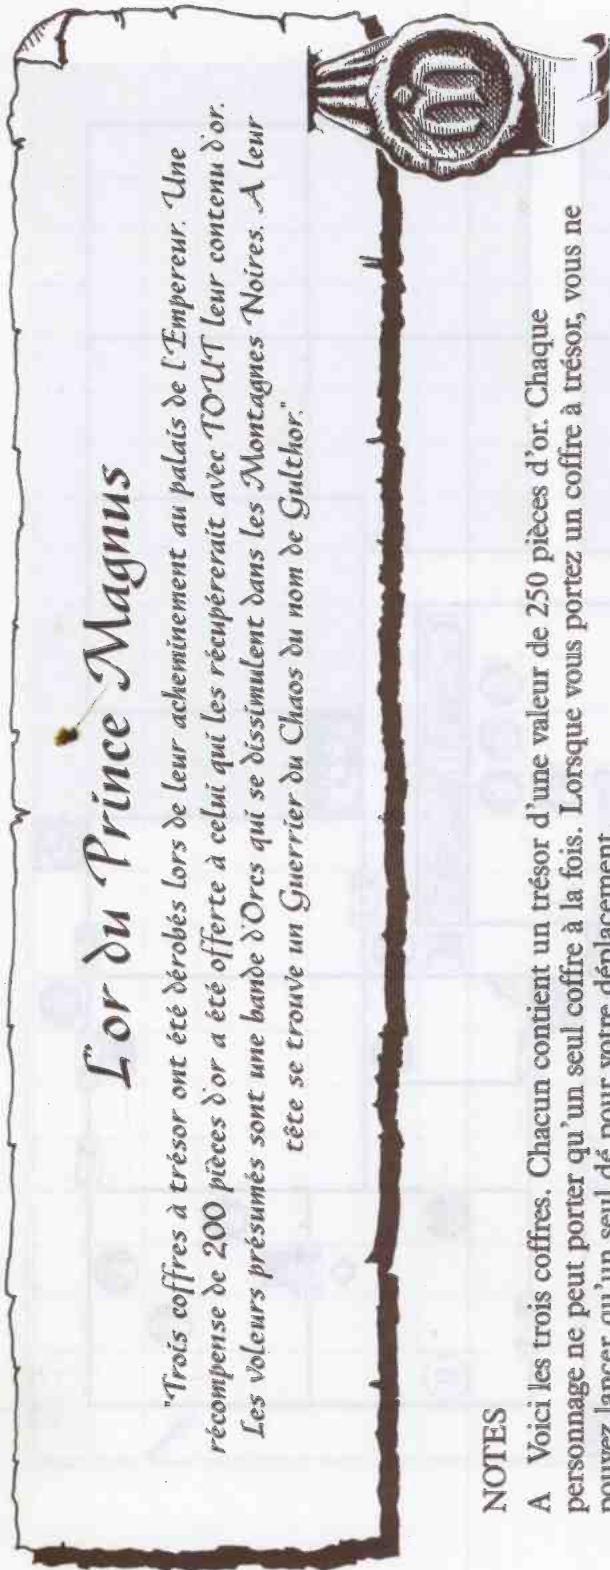 L'or du Prince Magnus
"Trois coffres à trésor ont été dérobés lors de leur acheminement au palais de l'Empereur. Une
récompense de 200 pièces d'or a été offerte à celui qui les récupérerait avec TOUT leur contenu d'or.
Les voleurs présumés sont une bande d'Orcs qui se dissimulent dans les Montagnes Noires. A leur
tête se trouve un Guerrier du Chaos du nom de Gulthor."
NOTES
A Voici les trois coffres. Chacun contient un trésor d'une valeur de 250 pièces d'or. Chaque
personnage ne peut porter qu'un seul coffre à la fois. Lorsque vous portez un coffre à trésor, vous ne
pouvez lancer qu'un seul dé pour votre déplacement